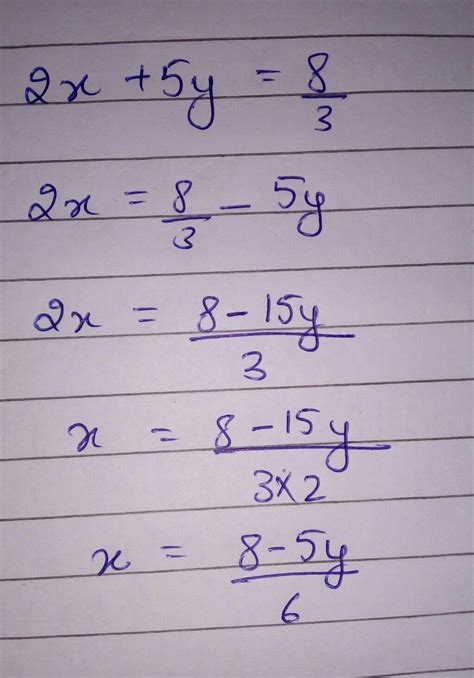 2x + 5y = 8/3
2x = 8/3 - 5y
2x = 8-15y/3
x = 8-15y/3×2
x = 8-5y/6